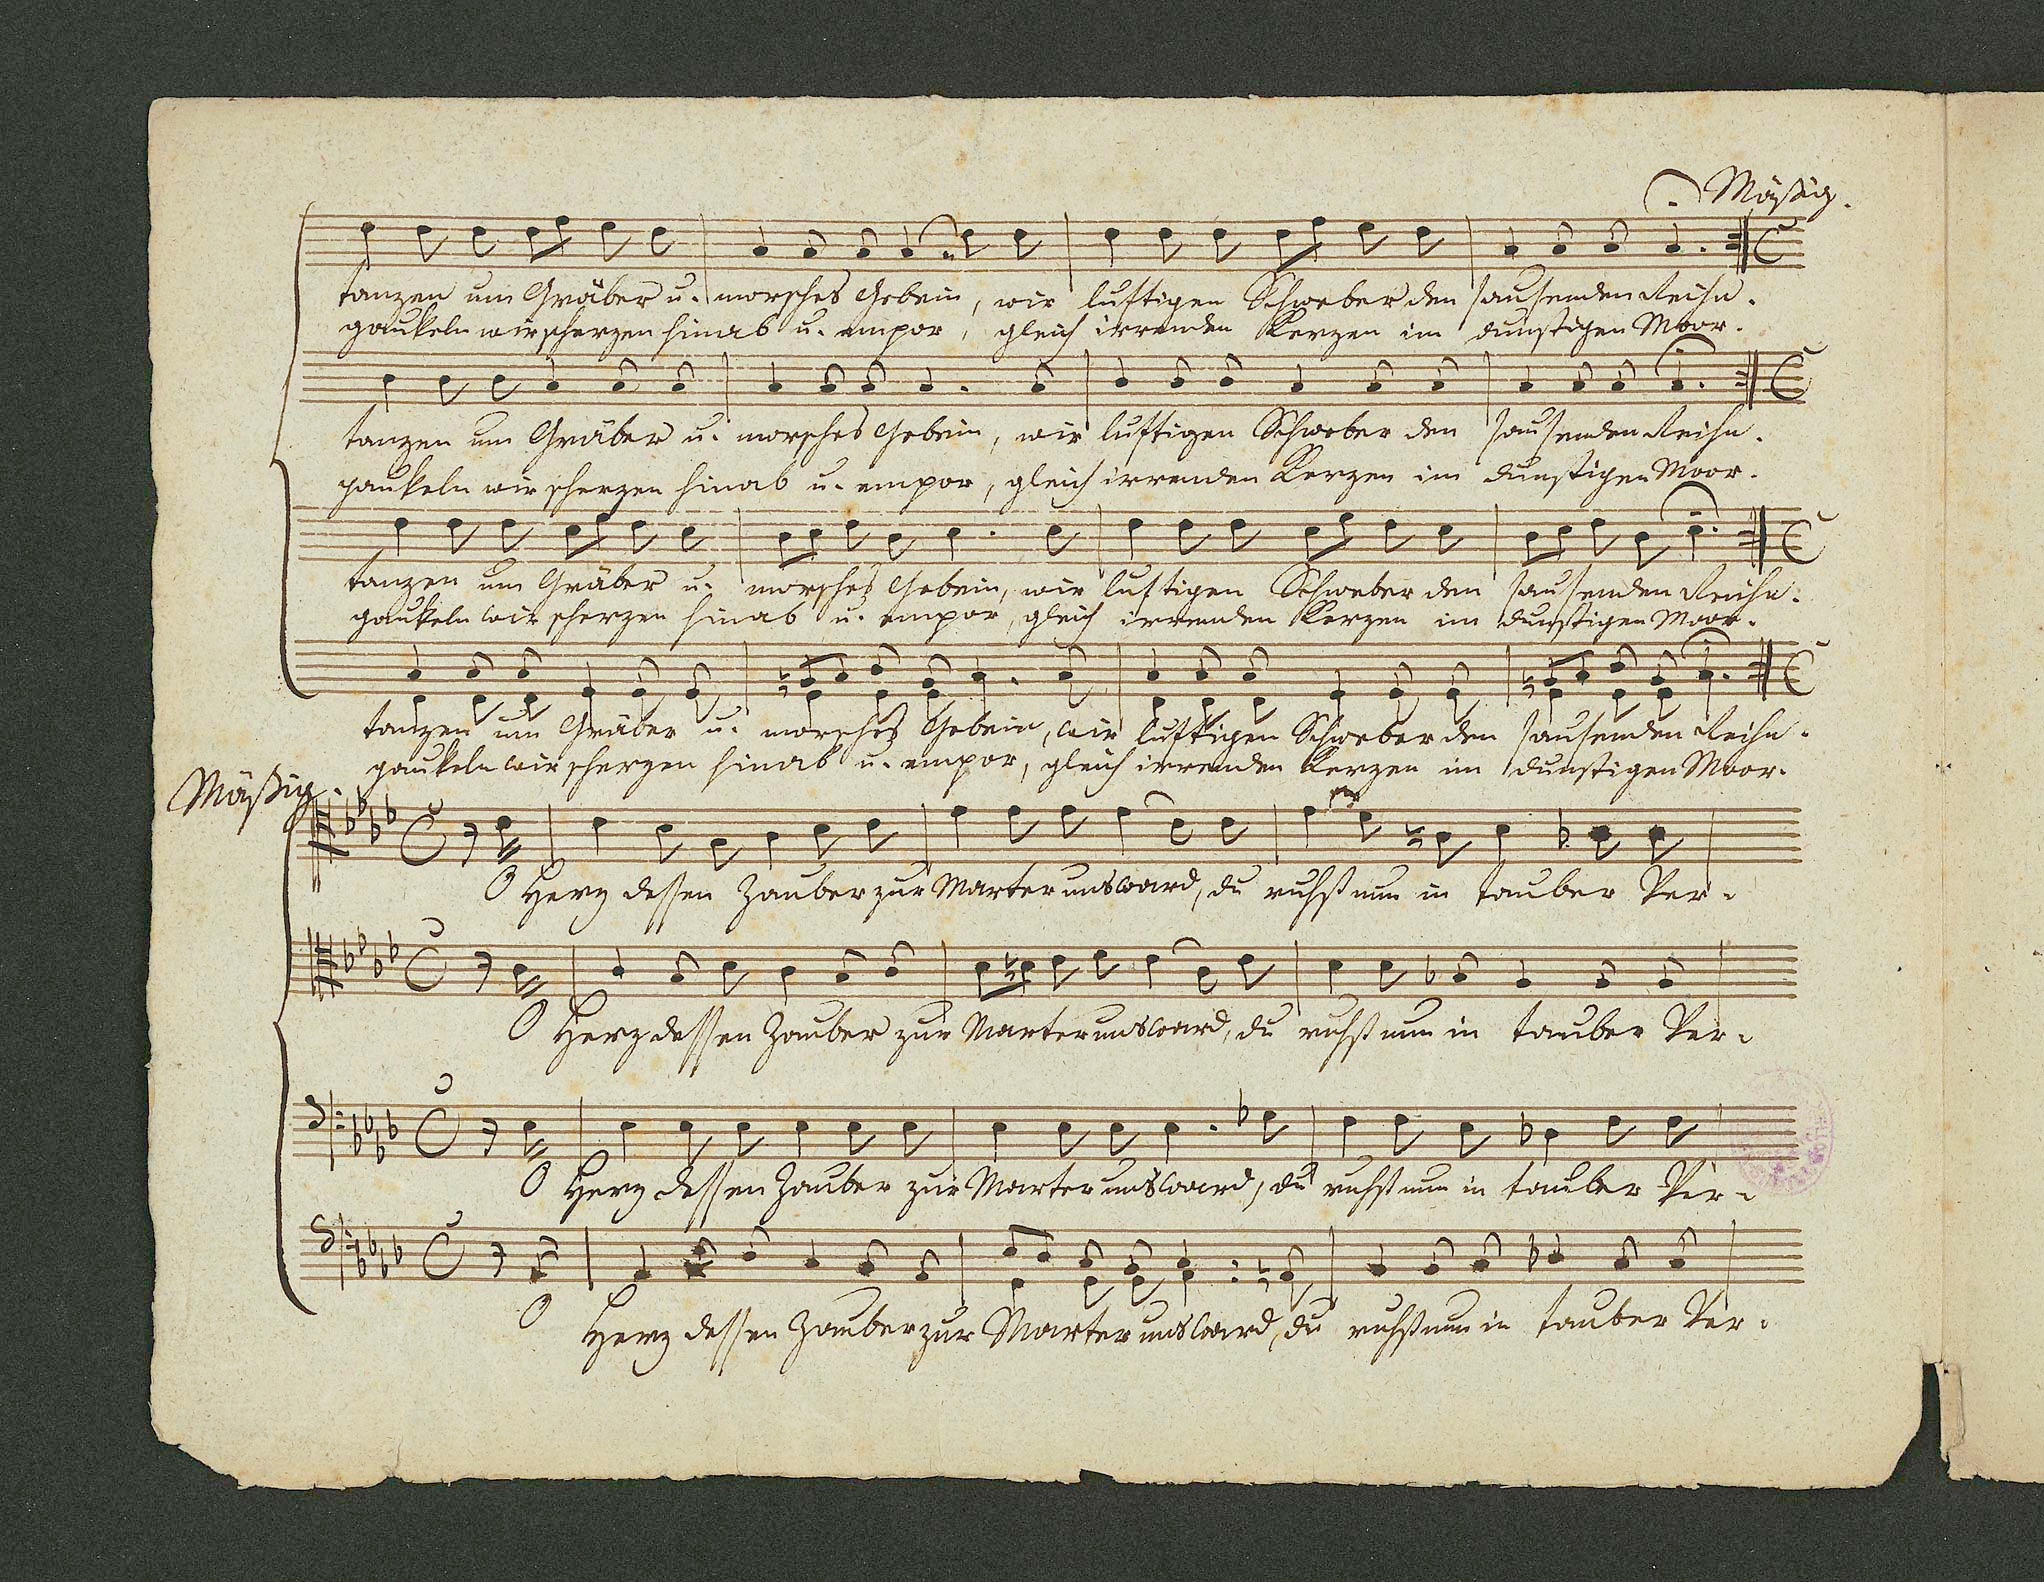 Mäßig.
tanzen um Gräber u. morsches Gebein, wir luftigen Schweber den sausenden Reihn.
gaukeln wir scherzen hinab u. empor, gleich irrenden Kerzen im dunstigen Moor.
tanzen um Gräber u. morsches Gebein, wir luftigen Schweber den sausenden Reihn.
gaukeln wir scherzen hinab u. empor, gleich irrenden Kerzen im dunstigen Moor.
tanzen um Gräber u. morsches Gebein, wir luftigen Schweber den sausenden Reihn.
gaukeln wir scherzen hinab u. empor, gleich irrenden Kerzen im dunstigen Moor.
tanzen um Gräber u. morsches Gebein, wir luftigen Schweber den sausenden Reihn.
gaukeln wir scherzen hinab u. empor, gleich irrenden Kerzen im dunstigen Moor.
Mäßig.
O Herz dessen Zauber zur Marter uns ward, du ruhst nun in tauber Ver-
O Herz dessen Zauber zur Marter uns ward, du ruhst nun in tauber Ver-
O Herz dessen Zauber zur Marter uns ward, du ruhst nun in tauber Ver-
O Herz dessen Zauber zur Marter uns ward, du ruhst nun in tauber Ver-